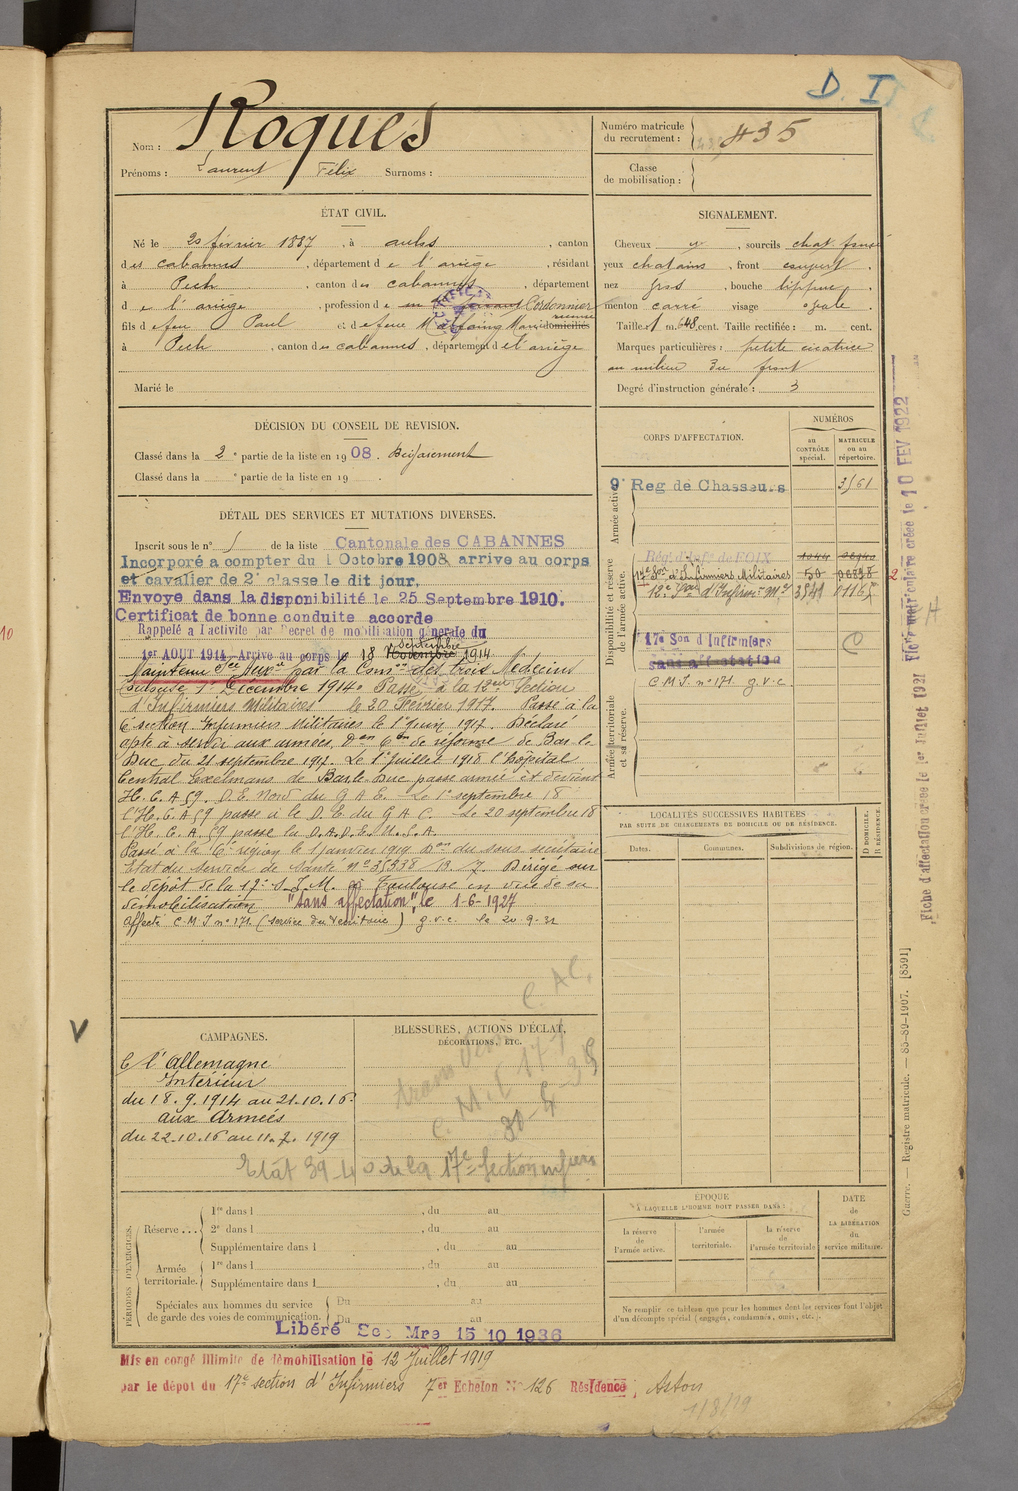 D. I
Nom : Roques
Prénoms : Laurent Félix Surnoms :
Numéro matricule du recrutement : 435
Classe de mobilisation :
ÉTAT CIVIL.
Né le 20 février 1887, à aulos, canton
des cabannes, département de l'ariège, résidant
à Pech, canton des cabannes, département
de l'ariège, profession de Cordonnier
fils de feu Paul et de feue Marfaing Marie domiciliés
à Pech, canton des cabannes, département de l'ariège
Marié le
SIGNALEMENT.
Cheveux, sourcils chat. foncé
yeux chatains, front couvert.
nez gros, bouche lippue.
menton carré visage ovale.
Taille : 1 m. 648 cent. Taille rectifiée : m. cent.
Marques particulières : petite cicatrice
au milieu du front
Degré d'instruction générale : 3
DÉCISION DU CONSEIL DE REVISION.
Classé dans la 2e partie de la liste en 1908.
Classé dans la e partie de la liste en 19 .
CORPS D'AFFECTATION.
NUMÉROS
au CONTRÔLE spécial.
MATRICULE ou au répertoire.
Armée active.
9e Reg de Chasseurs 3561
Disponibilité et réserve de l'armée active.
Rég. d'Inf. de FOIX
17e Son d'Infirmiers Militaires 50
12e Son d'Infirm. Mres
17e Son d'Infirmiers
sans affectation
C.M.I. n° 171. g.v.c.
Armée territoriale et sa réserve.
DÉTAIL DES SERVICES ET MUTATIONS DIVERSES.
Inscrit sous le n° 5 de la liste Cantonale des CABANNES
Incorporé a compter du 1 Octobre 1908, arrive au corps
et cavalier de 2e classe le dit jour.
Envoye dans la disponibilité le 25 Septembre 1910.
Certificat de bonne conduite accorde
Rappelé a l'activite par Decret de mobilisation générale du
1er AOUT 1914. Arrive au corps le 18 Novembre septembre 1914
Maintenu par la Com.on des trois Médecins
1er Décembre 1914. Passé à la 12eme Section
d'Infirmiers Militaires le 20 Février 1917. Passé à la
6e section Infirmiers Militaires le 1er Juin 1917. Déclaré
apte à servir aux armées, Don Con de réforme de Bar le
Duc du 21 septembre 1917. Le 1er juillet 1918 l'hôpital
Central Exelmans de Bar le Duc passe armée et devient
H.C.A 59. D.E. Nord du G A E. Le 1er septembre 18
l'H.C.A 59 passe à la D.E du G A C. Le 20 septembre 18
l'H.C.A. 59 passe la D.A.D.E.U.S.A.
Passé à la 6e région le 1 janvier 1919 Don du sous secrétaire
Etat du service de santé n° 35338 B. 7. Dirigé sur
le dépôt de la 17e S.I.M. à Toulouse en vue de sa
démobilisation "sans affectation", le 1-6-1927
Affecté C.M.I n° 171. (service du territoire) g.v.c. le 20.9.32
LOCALITÉS SUCCESSIVES HABITÉES
PAR SUITE DE CHANGEMENTS DE DOMICILE OU DE RÉSIDENCE.
Dates. Communes. Subdivisions de région. D DOMICILE. R RÉSIDENCE.
CAMPAGNES.
C/ l'Allemagne
Intérieur
du 18.9.1914 au 21.10.16
aux Armées
du 22.10.16 au 11.7.1919
BLESSURES, ACTIONS D'ÉCLAT,
DÉCORATIONS, ETC.
C.M.I 171
Etat 39-40 de la 17e Section
PÉRIODES D'EXERCICES.
Réserve ... 1re dans l , du au
2e dans l , du au
Supplémentaire dans l , du au
Armée territoriale. 1re dans l , du au
Supplémentaire dans l , du au
Spéciales aux hommes du service de garde des voies de communication. Du au
Du au
Libéré Sce Mre 15 10 1936
ÉPOQUE
À LAQUELLE L'HOMME DOIT PASSER DANS :
la réserve de l'armée active.
l'armée territoriale.
la réserve de l'armée territoriale
DATE de LA LIBÉRATION du service militaire.
Ne remplir ce tableau que pour les hommes dont les services font l'objet
d'un décompte spécial (engagés, condamnés, omis, etc.).
Mis en congé illimité de démobilisation le 12 Juillet 1919
par le dépot du 17e section d'Infirmiers 7er Echelon N° 126 Résidence, Aston
1/8/19
Fiche matriculaire créée le 10 FEV 1922
Fiche d'affectation créée le 1er Juillet 1921
Guerre. — Registre matricule. — 85-89-1907. [8591]